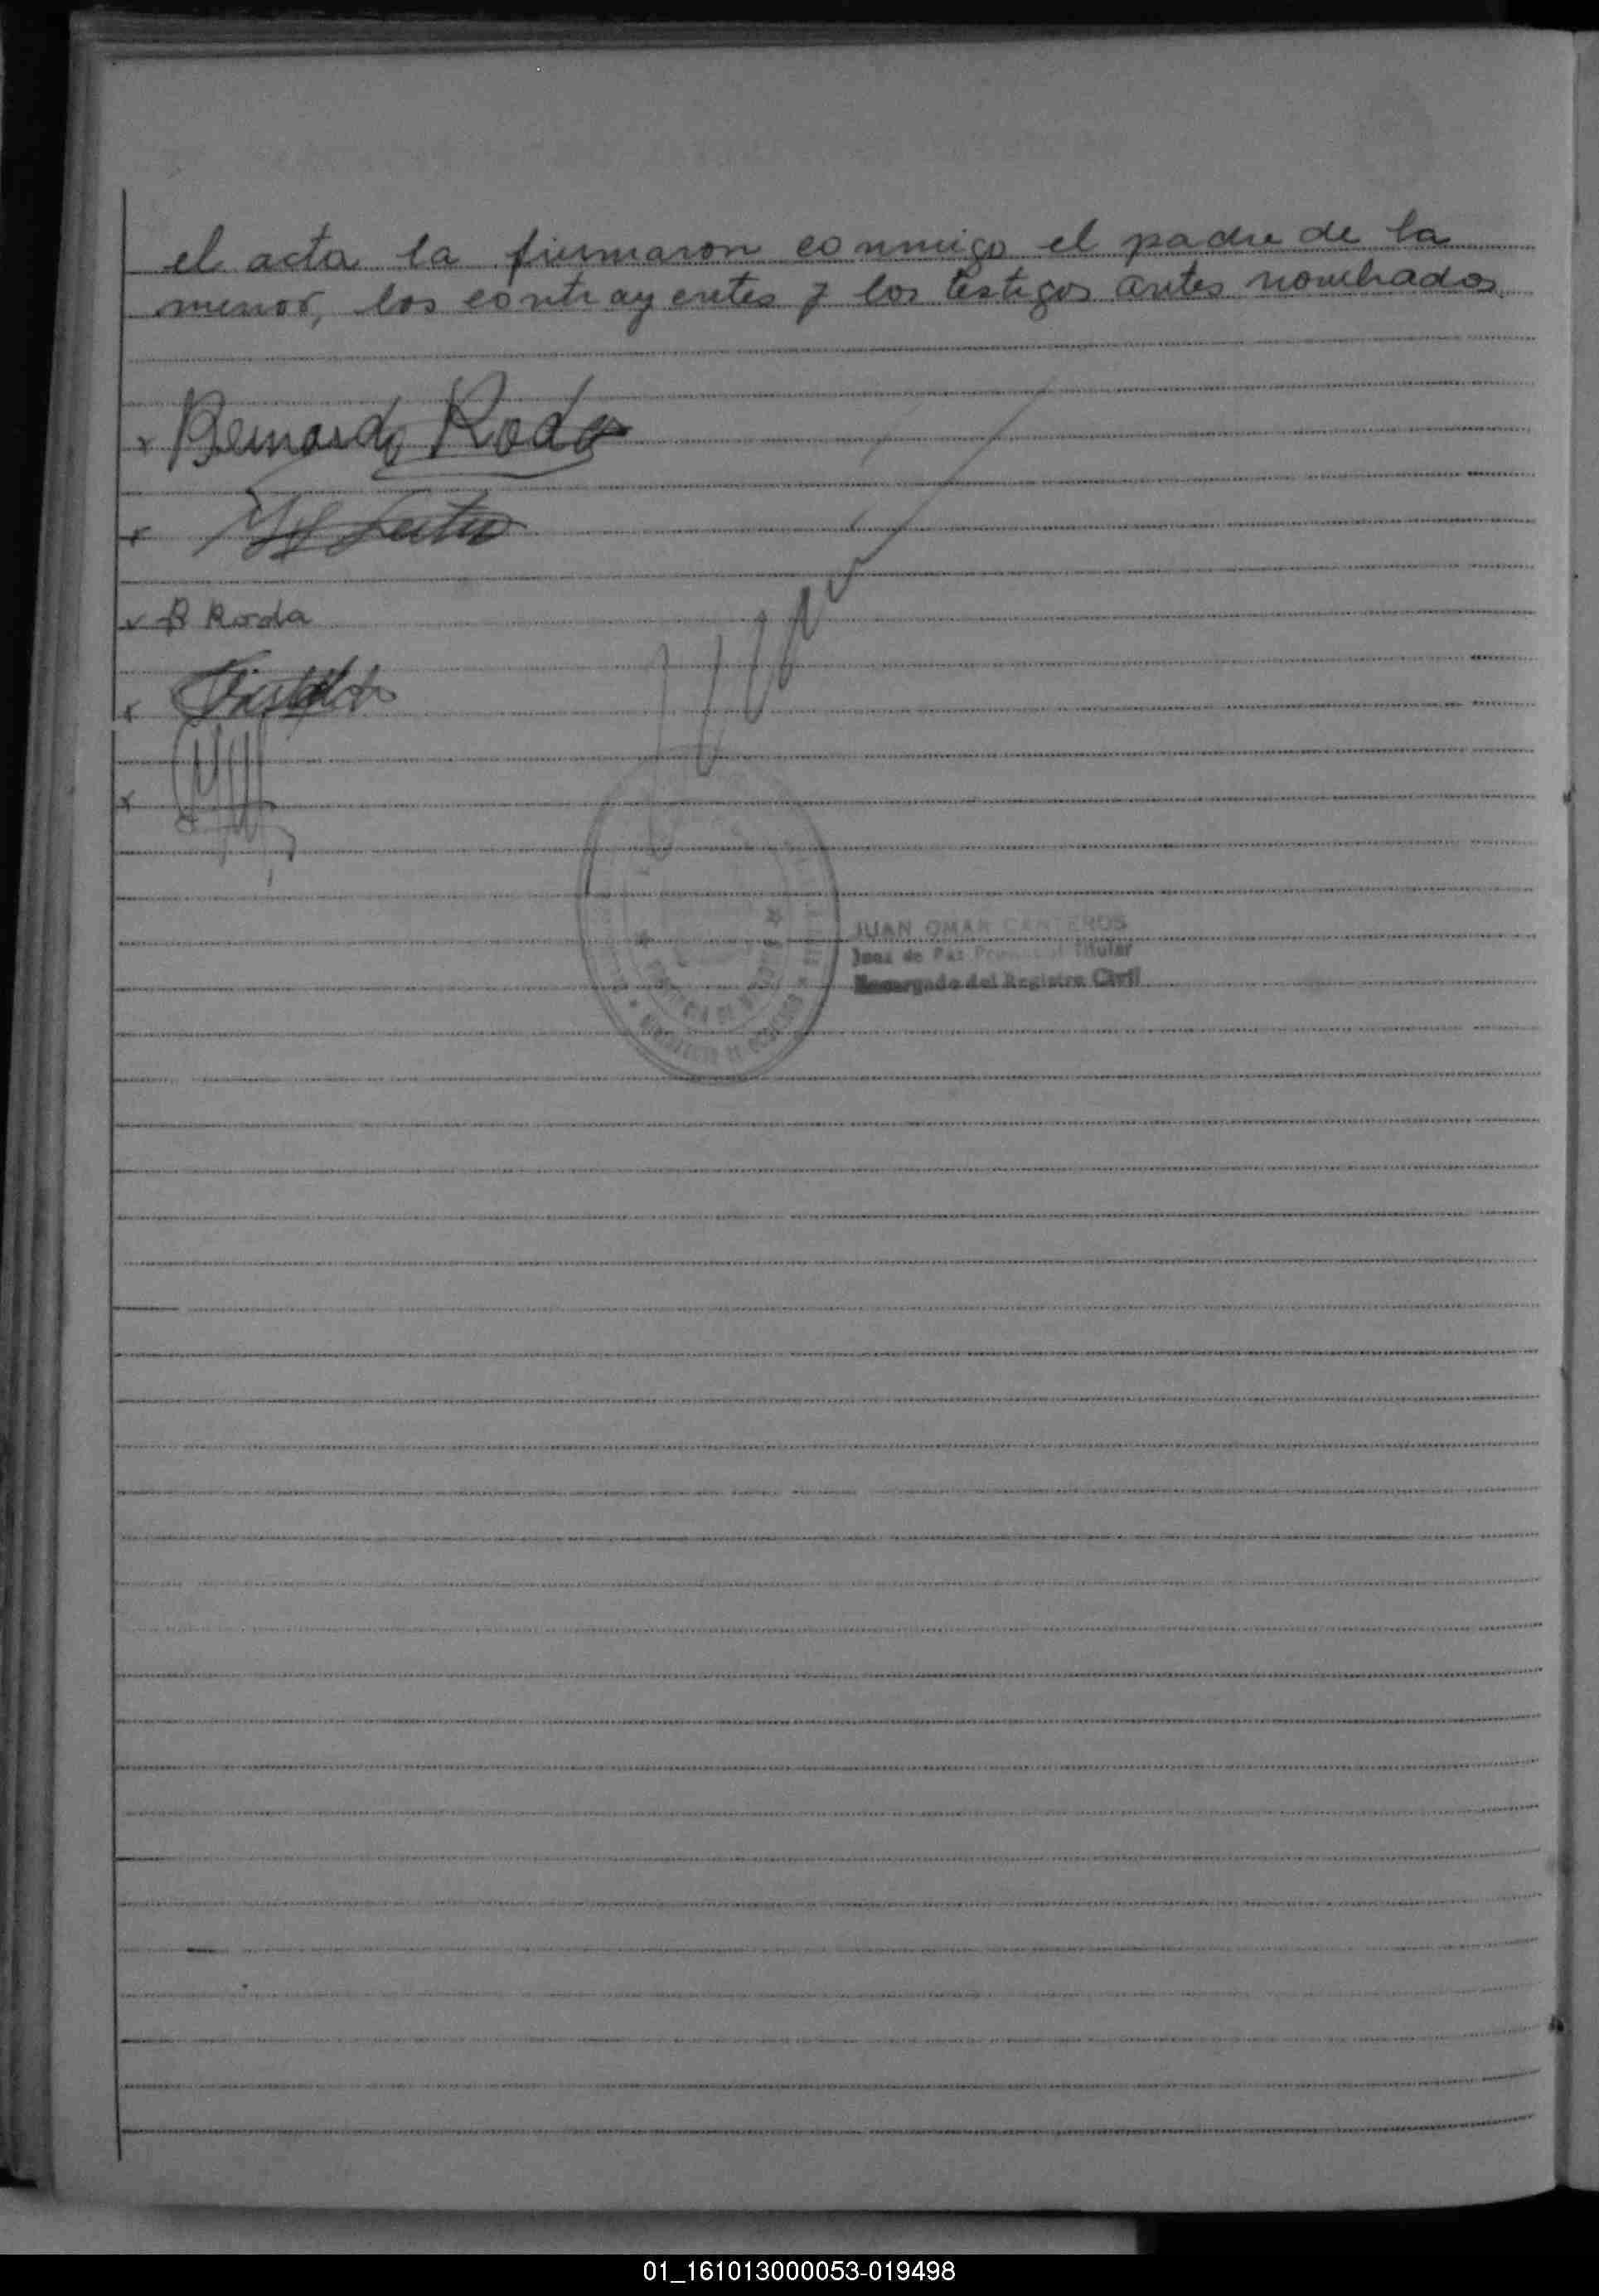 el acta la firmaron conmigo el padre de la
menor, los contrayentes y los testigos antes nombrados.
x Bernardo Roda
x
x R Roda
x
x
JUAN OMAR CANTEROS
Juez de Paz Provincial Titular
Encargado del Registro Civil
01_161013000053-019498